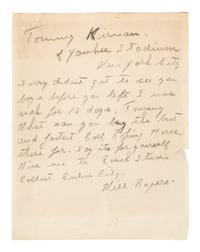 Tommy Kirnan.
of Yankee Stadium
New York City
Sorry didn't get to see you
boys before you left I was
sick for 16 days. Tommy
What can you buy the best
and fastest Calf Roping Horse
there for. Say its for yourself
Wire me to Roach Studio
Culver City.
Will Rogers.